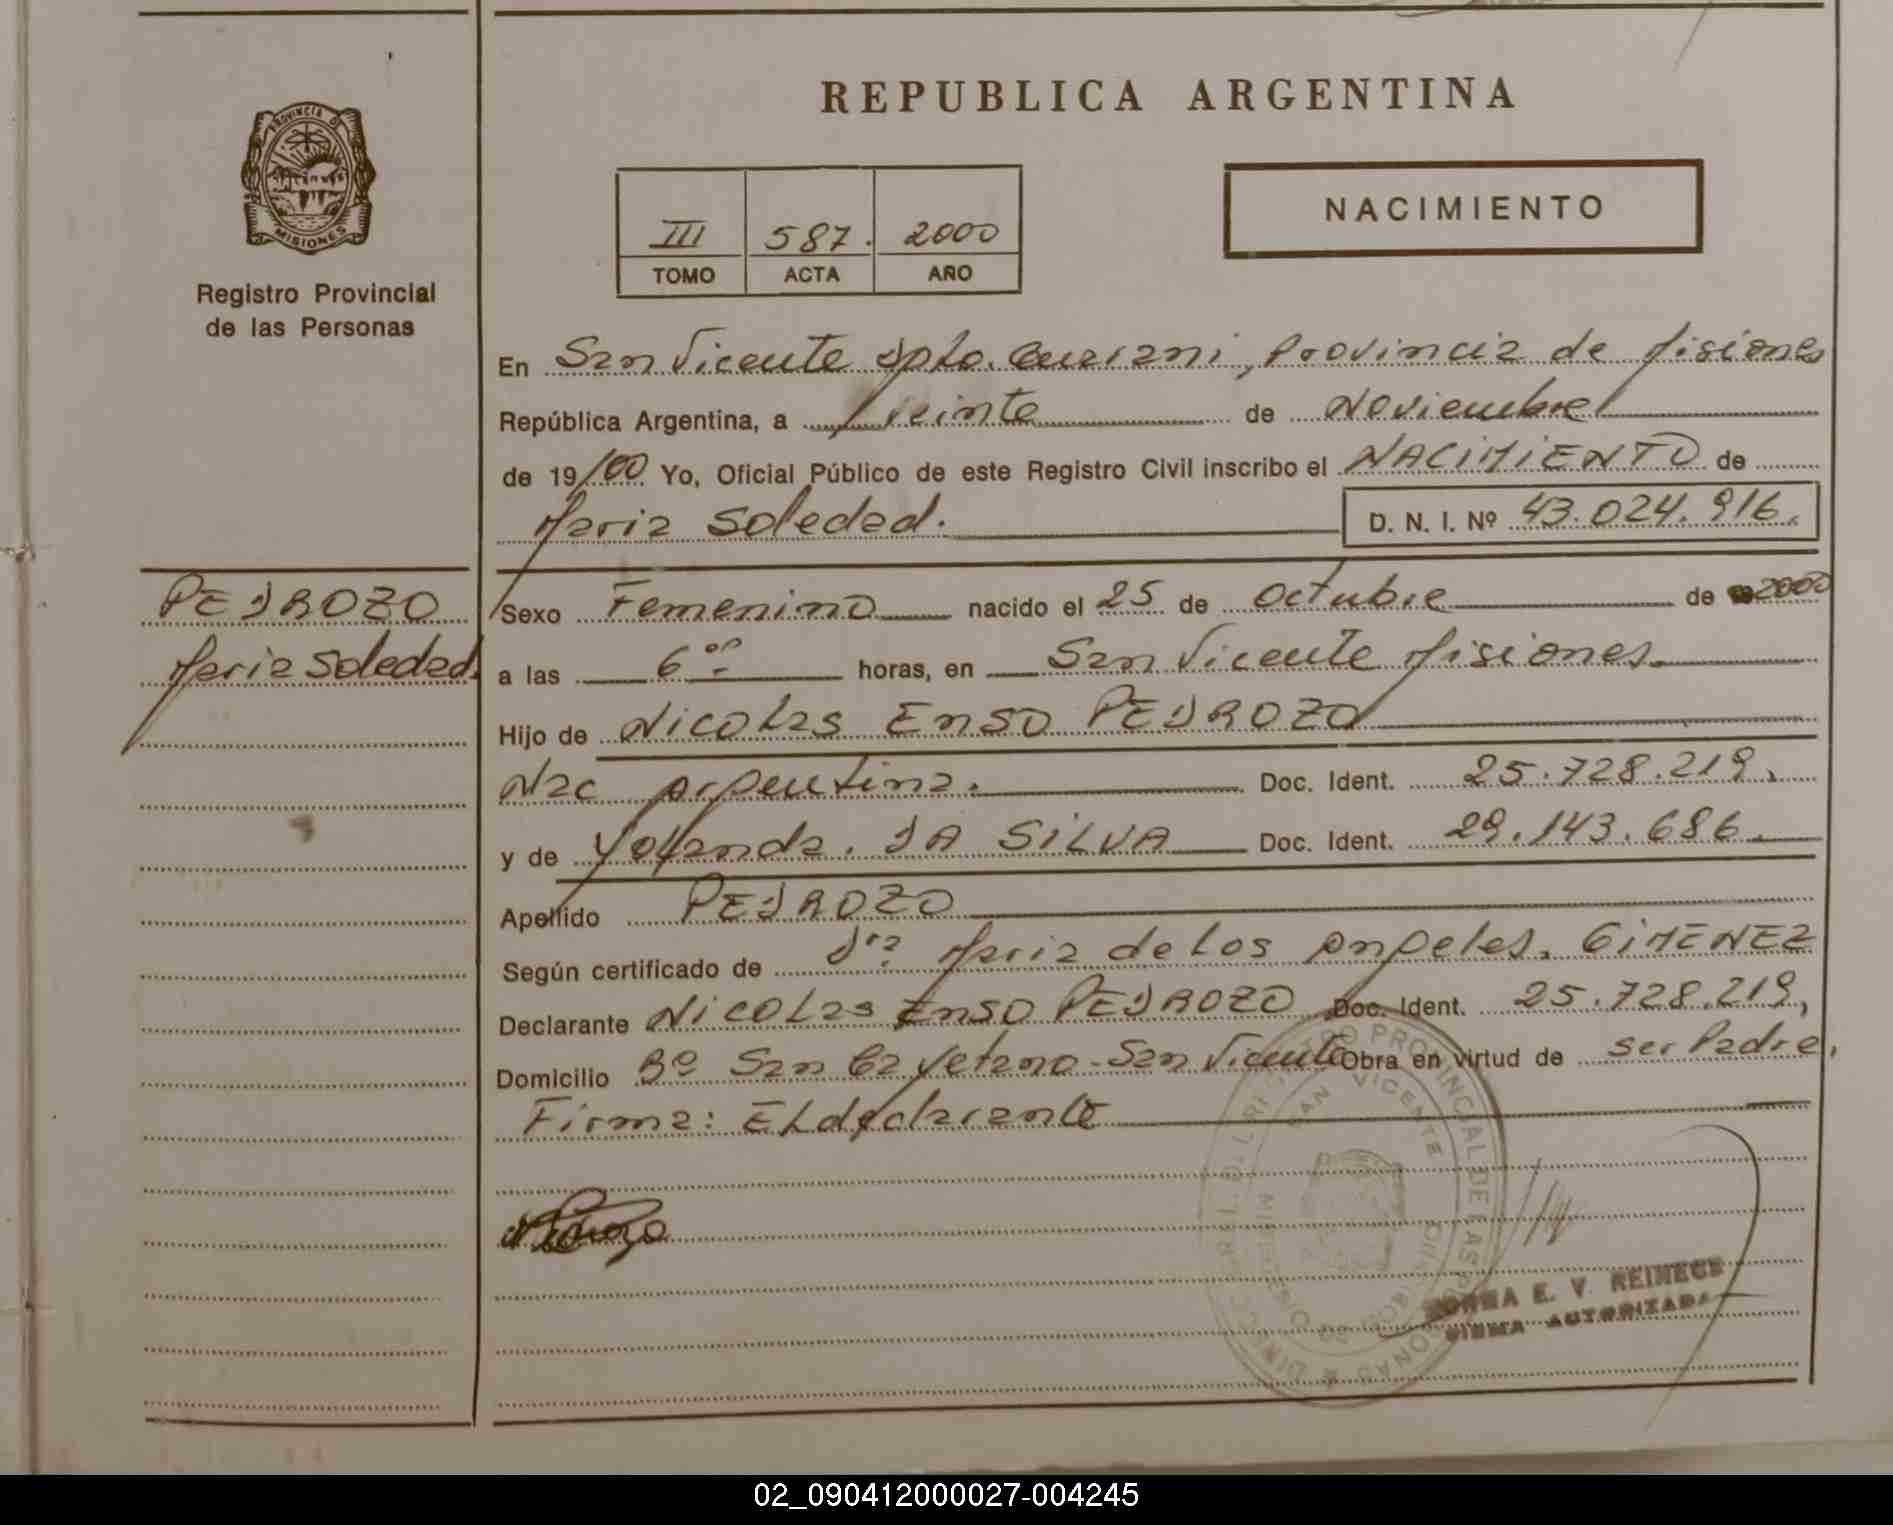 REPUBLICA ARGENTINA
PROVINCIA DE
MISIONES
Registro Provincial
de las Personas
III 587. 2000
TOMO ACTA AÑO
NACIMIENTO
En San Vicente Dpto. Guarani, Provincia de Misiones
República Argentina, a Veinte de Noviembre
de 19/00 Yo, Oficial Público de este Registro Civil inscribo el NACIMIENTO de
Maria Soledad. D. N. I. Nº 43.024.916.
PEDROZO
Maria Soledad.
Sexo Femenino nacido el 25 de Octubre de 2000
a las 6 horas, en San Vicente Misiones.
Hijo de Nicolas Enso PEDROZO
Nac Argentina. Doc. Ident. 25.728.219.
y de Yolanda. DA SILVA Doc. Ident. 29.143.686.
Apellido PEDROZO
Según certificado de Dra Maria de Los Angeles. GIMENEZ
Declarante Nicolas Enso PEDROZO Doc. Ident. 25.728.219,
Domicilio Bº San Cayetano - San Vicente Obra en virtud de ser Padre,
Firma: El declarante
SAN VICENTE
E. V. REINECK
FIRMA AUTORIZADA
02_090412000027-004245